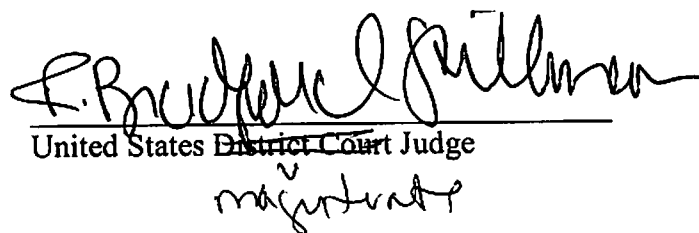 F. Bradford Stillman
United States District Court Judge
magistrate